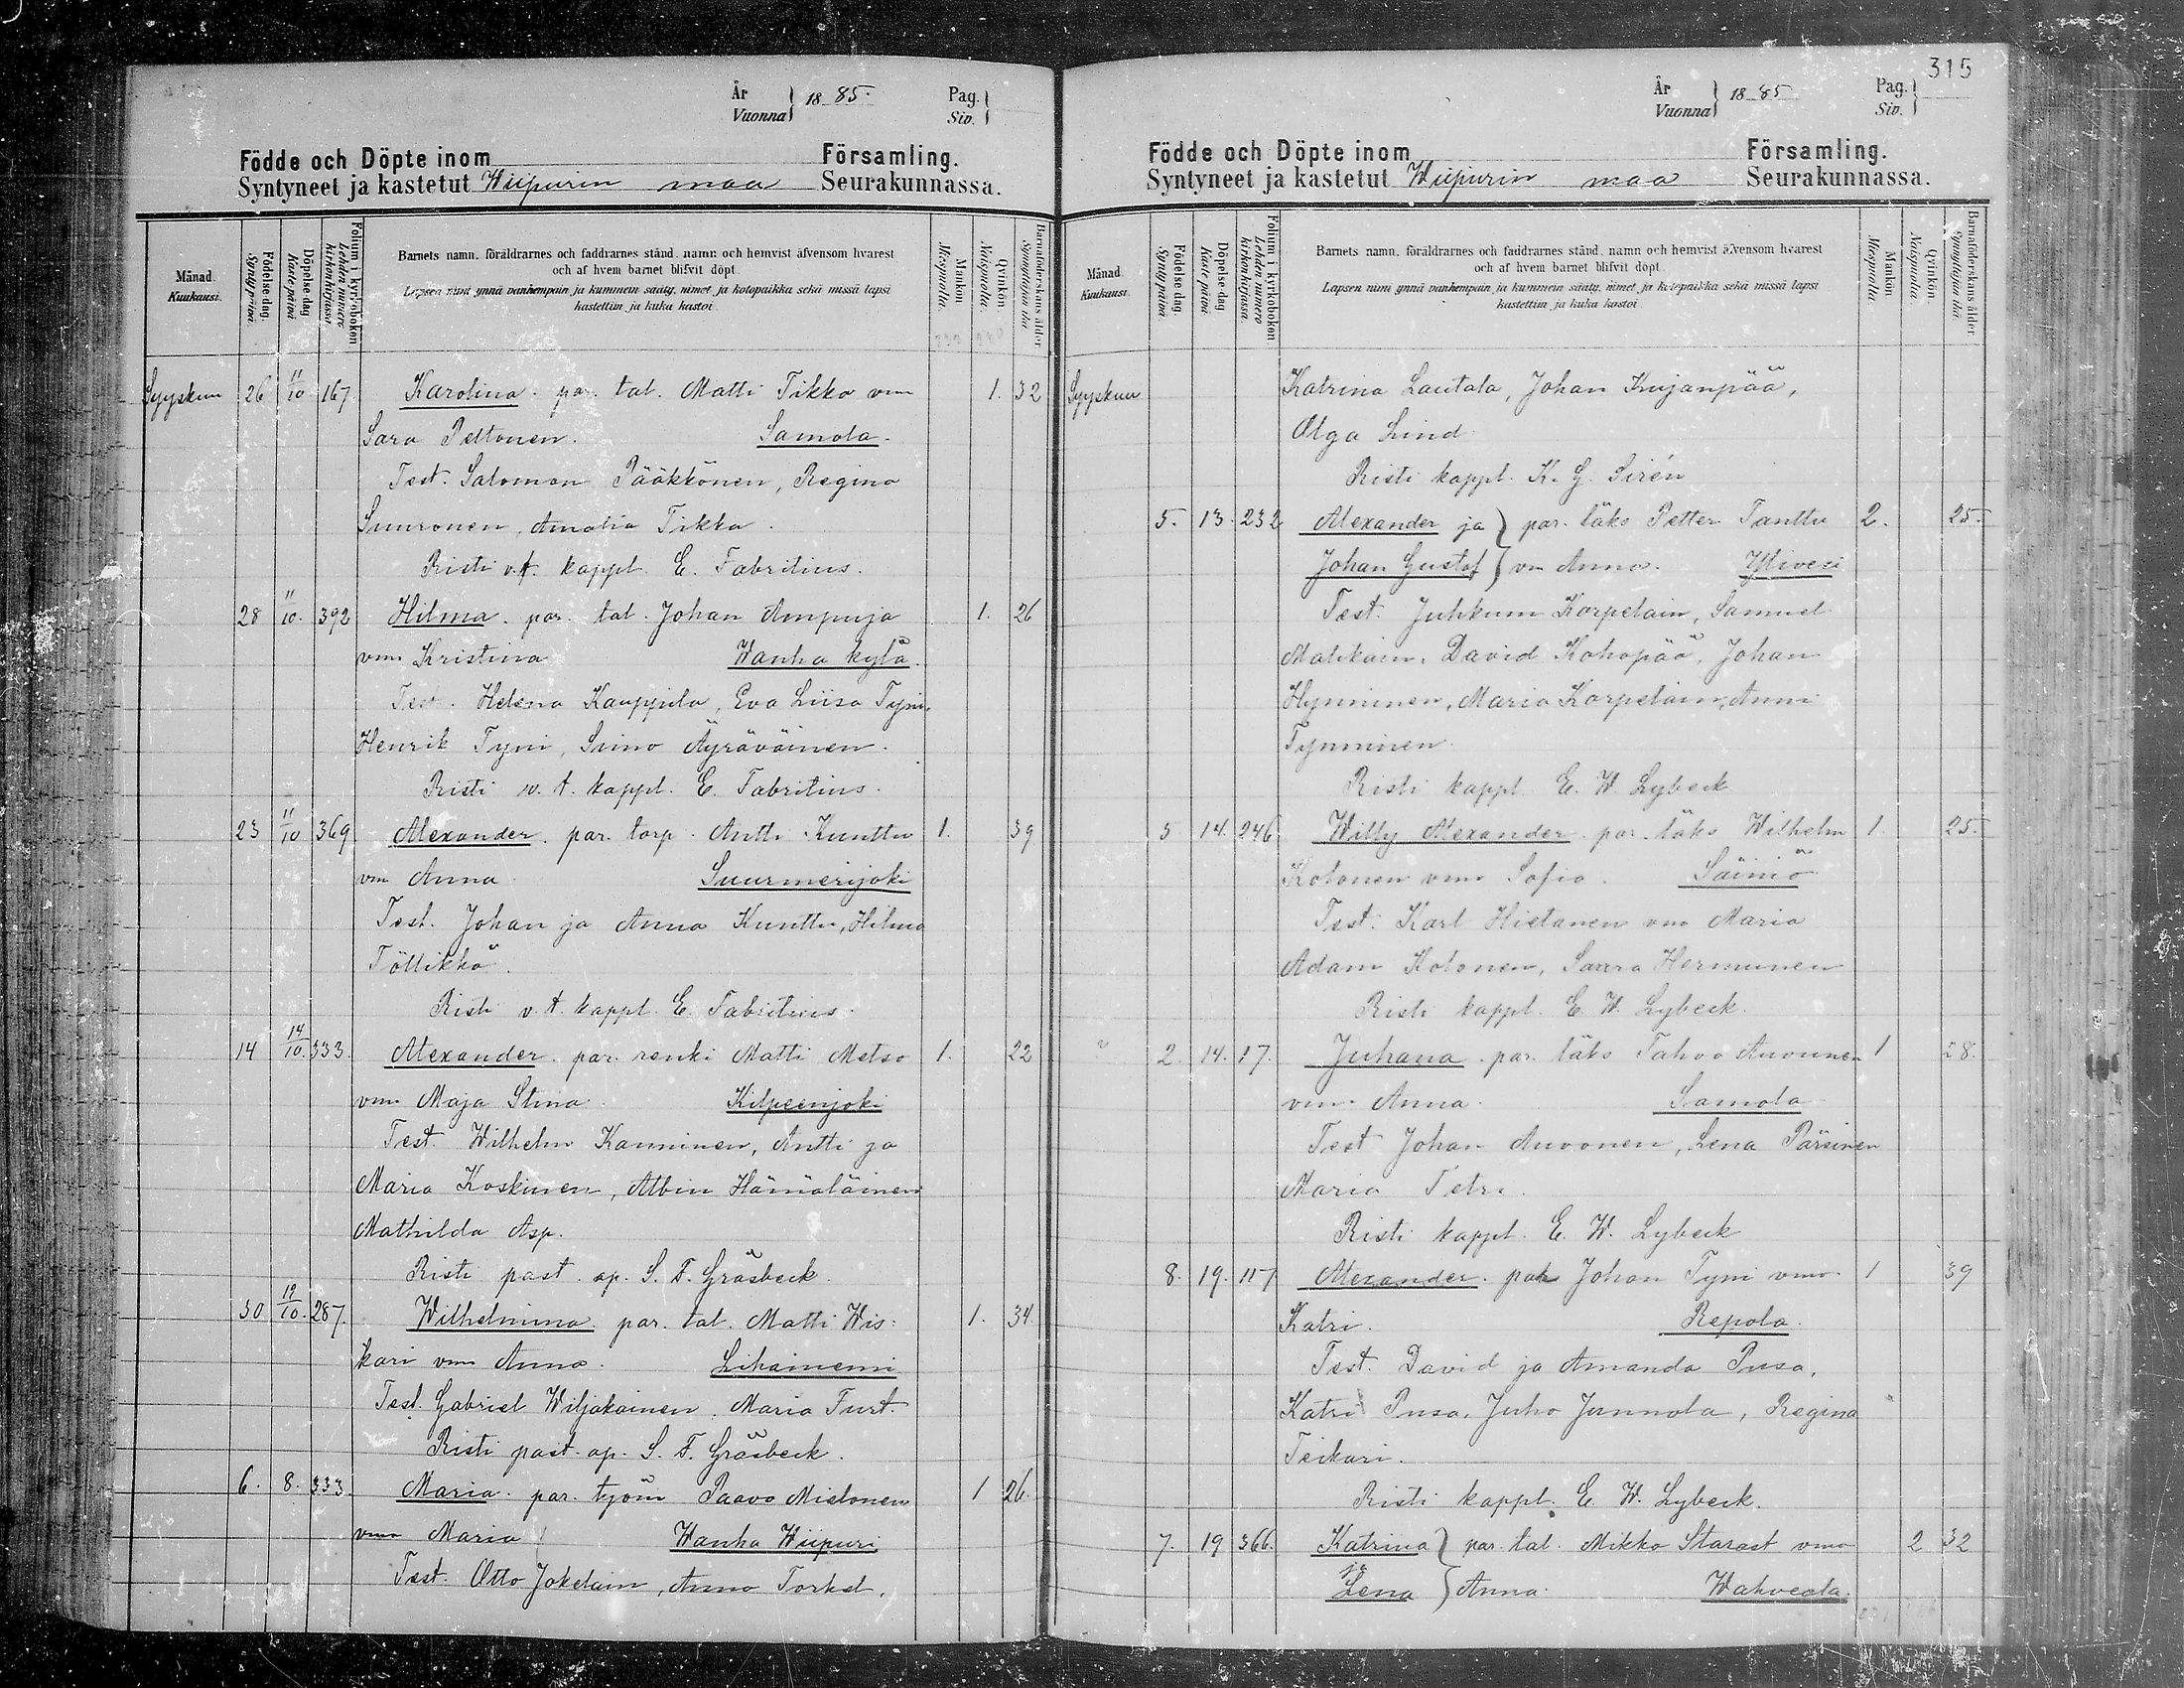 År
Vuonna } 18 85.
Pag.
Siv. }
Födde och Döpte inom Församling.
Syntyneet ja kastetut Wiipurin maa Seurakunnassa.
Månad.
Kuukausi.
Födelse dag.
Syntypäivä
Döpelse dag
Kastepäivä
Folium i kyrkoboken
Lehden numero kirkonkirjassa
Barnets namn, föräldrarnes och faddrarnes stånd, namn och hemvist äfvensom hvarest
och af hvem barnet blifvit döpt.
Lapsen nimi ynnä vanhempain ja kummein sääty, nimet ja kotopaikka sekä missä lapsi
kastettiin ja kuka kastoi
Mankön
Miespuolta.
Qvinkön
Naispuolta.
Barnaföderskans ålder
Synnyttäjän ikä
Syyskuu 26 11/10 167 Karolina. par. tal. Matti Tikka vmo 1. 32
Sara Peltonen. Samola.
Test. Salomon Pääkkönen, Regina
Suuronen, Amalia Tikka.
Risti v.t. kappl. E. Fabritius.
28 11/10. 392 Hilma. par. tal. Johan Ampuja 1. 26
vmo Kristina Wanha kylä.
Test. Helena Kauppila, Eva Liisa Tyni,
Henrik Tyni, Äyräväinen.
Risti v.t. kappl. E. Fabritius.
23 11/10 369 Alexander. par. torp. Antti Kunttu 1. 39
vmo Anna Suurmerijoki
Test. Johan ja Anna Kunttu, Hilma
Töttikkö.
Risti v.t. kappl. E. Fabritius.
14 14/10. 333. Alexander. par. renki Matti Metso 1. 22
vmo Maja Stina. Kilpeenjoki
Test. Wilhelm Kanninen, Antti ja
Maria Koskinen, Albin Hämäläinen
Mathilda Asp.
Risti past. ap. S. F. Gräsbeck.
30 19/10. 287. Wilhelmina par. tal. Matti Wis= 1. 34.
kari vmo Anna. Lihainiemi
Test. Gabriel Wiljakainen. Maria Turt.
Risti past. ap. S. F. Gräsbeck.
6. 8. 333. Maria. par. työm Paavo Mielonen 1 26.
vmo Maria Wanha Wiipuri
Test. Otto Jokelain, Anna Torkel,
315
År
Vuonna } 18 85
Pag.
Siv. }
Födde och Döpte inom Församling.
Syntyneet ja kastetut Wiipurin maa Seurakunnassa.
Månad
Kuukausi
Födelse dag
Syntypäivä.
Döpelse dag
Kaste päivä.
Folium i kyrkoboken
Lehden numero kirkonkirjassa.
Barnets namn, föräldrarnes och faddrarnes stånd, namn och hemvist äfvensom hvarest
och af hvem barnet blifvit döpt.
Lapsen nimi ynnä vanhempain ja kummein sääty, nimet ja kotopaikka sekä missä lapsi
kastettiin ja kuka kastoi
Mankön
Miespuolta
Qvinkön.
Naispuolta.
Barnaföderskans ålder
Synnyttäjän ikä.
Syyskuu Katrina Lautala, Johan Kujanpää,
Olga Lind.
Risti kappl. K. G. Sirén
5. 13. 232 Alexander ja } par. läks Petter Tanttu 2. 25.
Johan Gustaf } vm Anna. Ylivesi
Test. Juhkum Korpelain, Samuel
Matikain, David Kohopää, Johan
Hynninen, Maria Korpelain, Anni
Tynninen
Risti kappl. E. W. Lybeck
5 14. 246 Willy Alexander. par. läks Wilhelm 1 25.
Kolonen vmo Sofia. Säiniö
Test. Karl Hietanen vmo Maria
Adam Kolonen, Saara Hermunen
Risti kappl. E. W. Lybeck.
" 2. 14. 17. Juhana. par. läks Tahvo Auvonen 1 28.
vmo Anna. Samola
Test Johan Auvonen, Lena Pärsinen
Maria Tetri.
Risti kappl. E. W. Lybeck
8. 19. 117 Alexander. par Johan Tyni vmo 1 39
Katri. Repola.
Test. David ja Amanda Pusa,
Katri Pusa, Juho Junnola, Regina
Teikari.
Risti kappl. E. W. Lybeck.
7. 19 366. Katrina } par. tal. Mikko Starast vmo 2 32
ja
Lena } Anna. Wahveala.